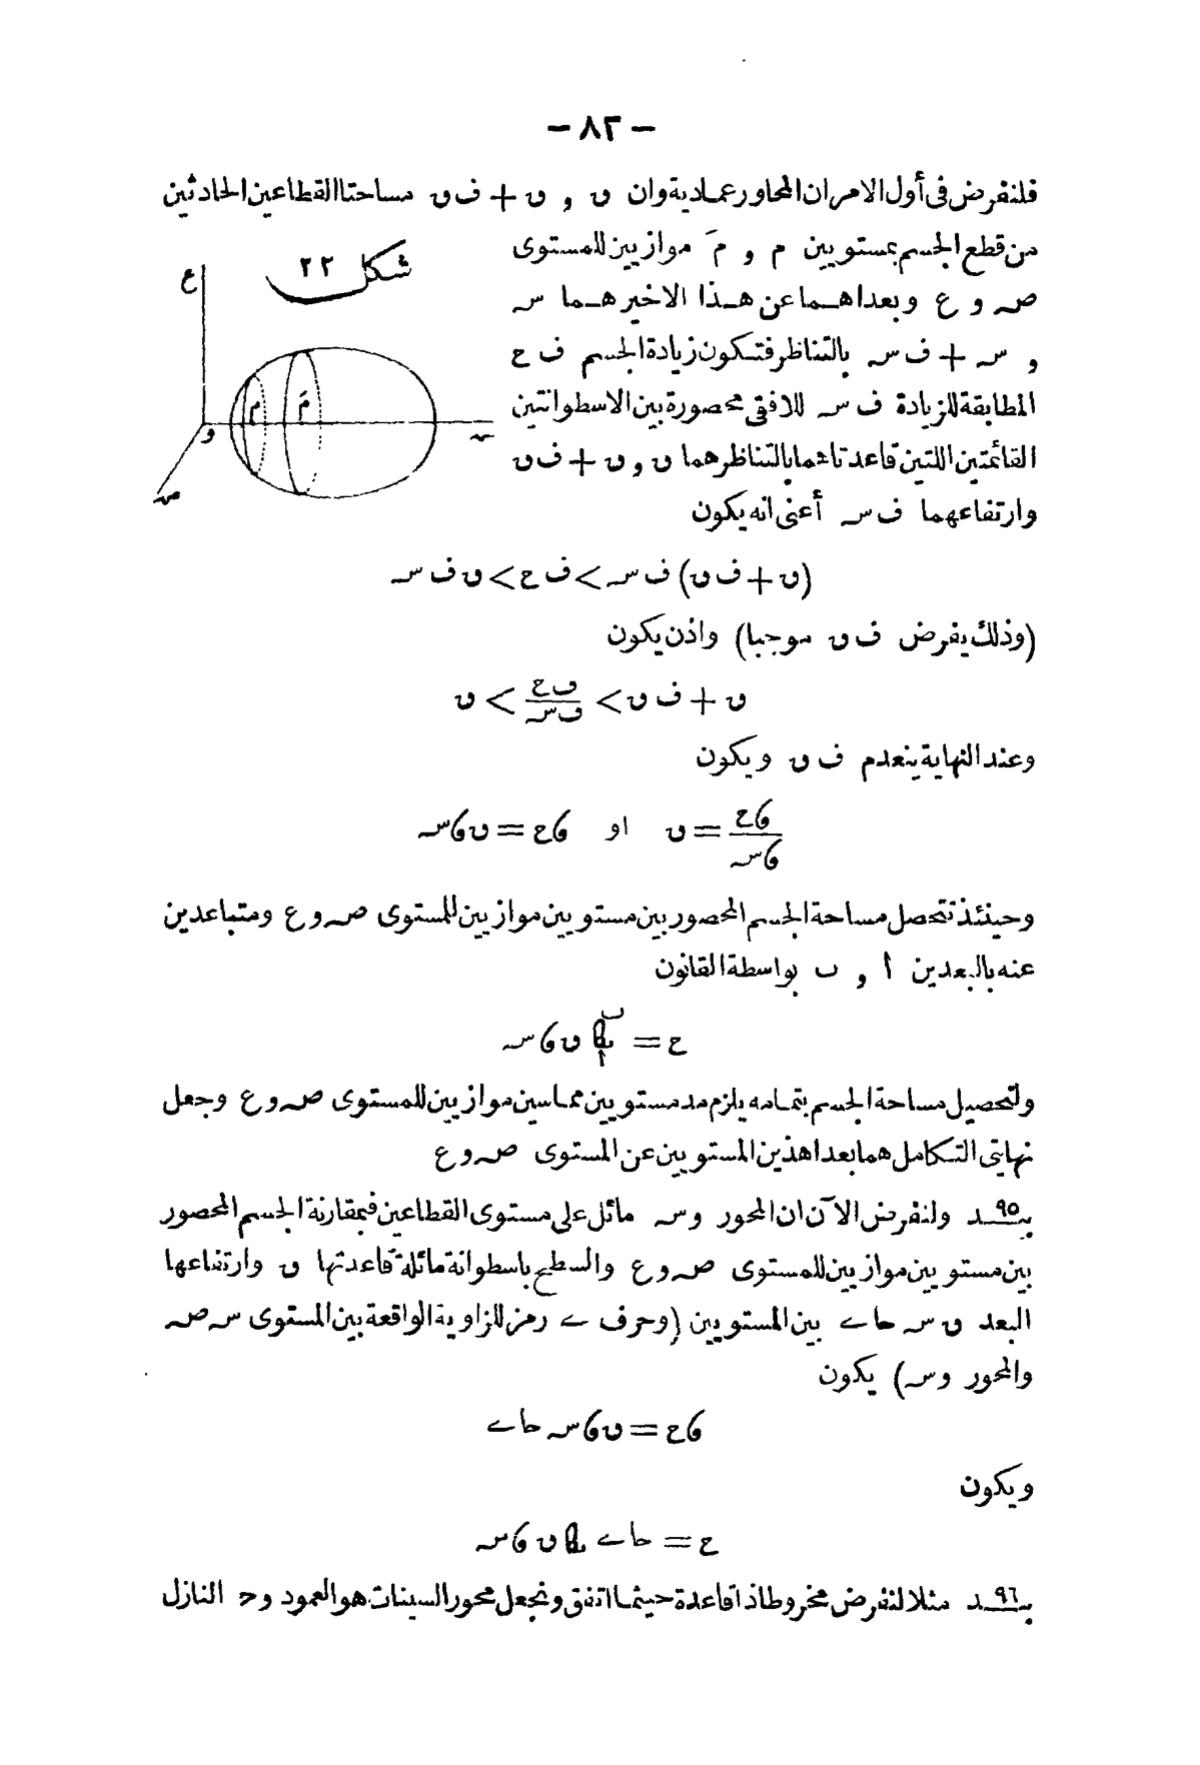 — ٨٢ —
فلنفرض فى أول الامر ان المحاور عمادية وان ں و ں + ف ں مساحتا القطاعين الحادثين
من قطع الجسم بمستويين م و مَ موازيين للمستوى
صہ و ع وبعداهما عن هذا الاخير هما سہ
و سہ + ف سہ بالتناظر فتكون زيادة الجسم ف ح
المطابقة للزيادة ف سہ للافقى محصورة بين الاسطوانتين
القائمتين اللتين قاعدتاهما بالتناظر هما ں و ں + ف ں
وارتفاعهما ف سہ أعنى انه يكون
شكل ٢٢
ع
م
مَ
و
سہ
صہ
(ں + ف ں) ف سہ > ف ح > ں ف سہ
(وذلك بفرض ف ں موجبا) واذن يكون
ں + ف ں > ف ح / ف سہ > ں
وعند النهاية ينعدم ف ں ويكون
ءح / ءسہ = ں او ءح = ں ءسہ
وحينئذ تتحصل مساحة الجسم المحصور بين مستويين موازيين للمستوى صہ و ع ومتباعدين
عنه بالبعدين أ و ب بواسطة القانون
ح = ں ءسہ
ولتحصيل مساحة الجسم بتمامه يلزم مد مستويين مماسين موازيين للمستوى صہ و ع وجعل
نهايتى التكامل هما بعدا هذين المستويين عن المستوى صہ و ع
بـ٩٥ـد ولنفرض الآن ان المحور وسہ مائل على مستوى القطاعين فبمقارنة الجسم المحصور
بين مستويين موازيين للمستوى صہ و ع والسطح باسطوانة مائلة قاعدتها ں وارتفاعها
البعد ں سہ حاے بين المستويين (وحرف ے رمز للزاوية الواقعة بين المستوى سہ صہ
والمحور وسہ) يكون
ءح = ں ءسہ حاے
ويكون
ح = حاے ں ءسہ
بـ٩٦ـد مثلا لنفرض مخروطا ذا قاعدة حيثما اتفق ونجعل محور السينات هو العمود وح النازل